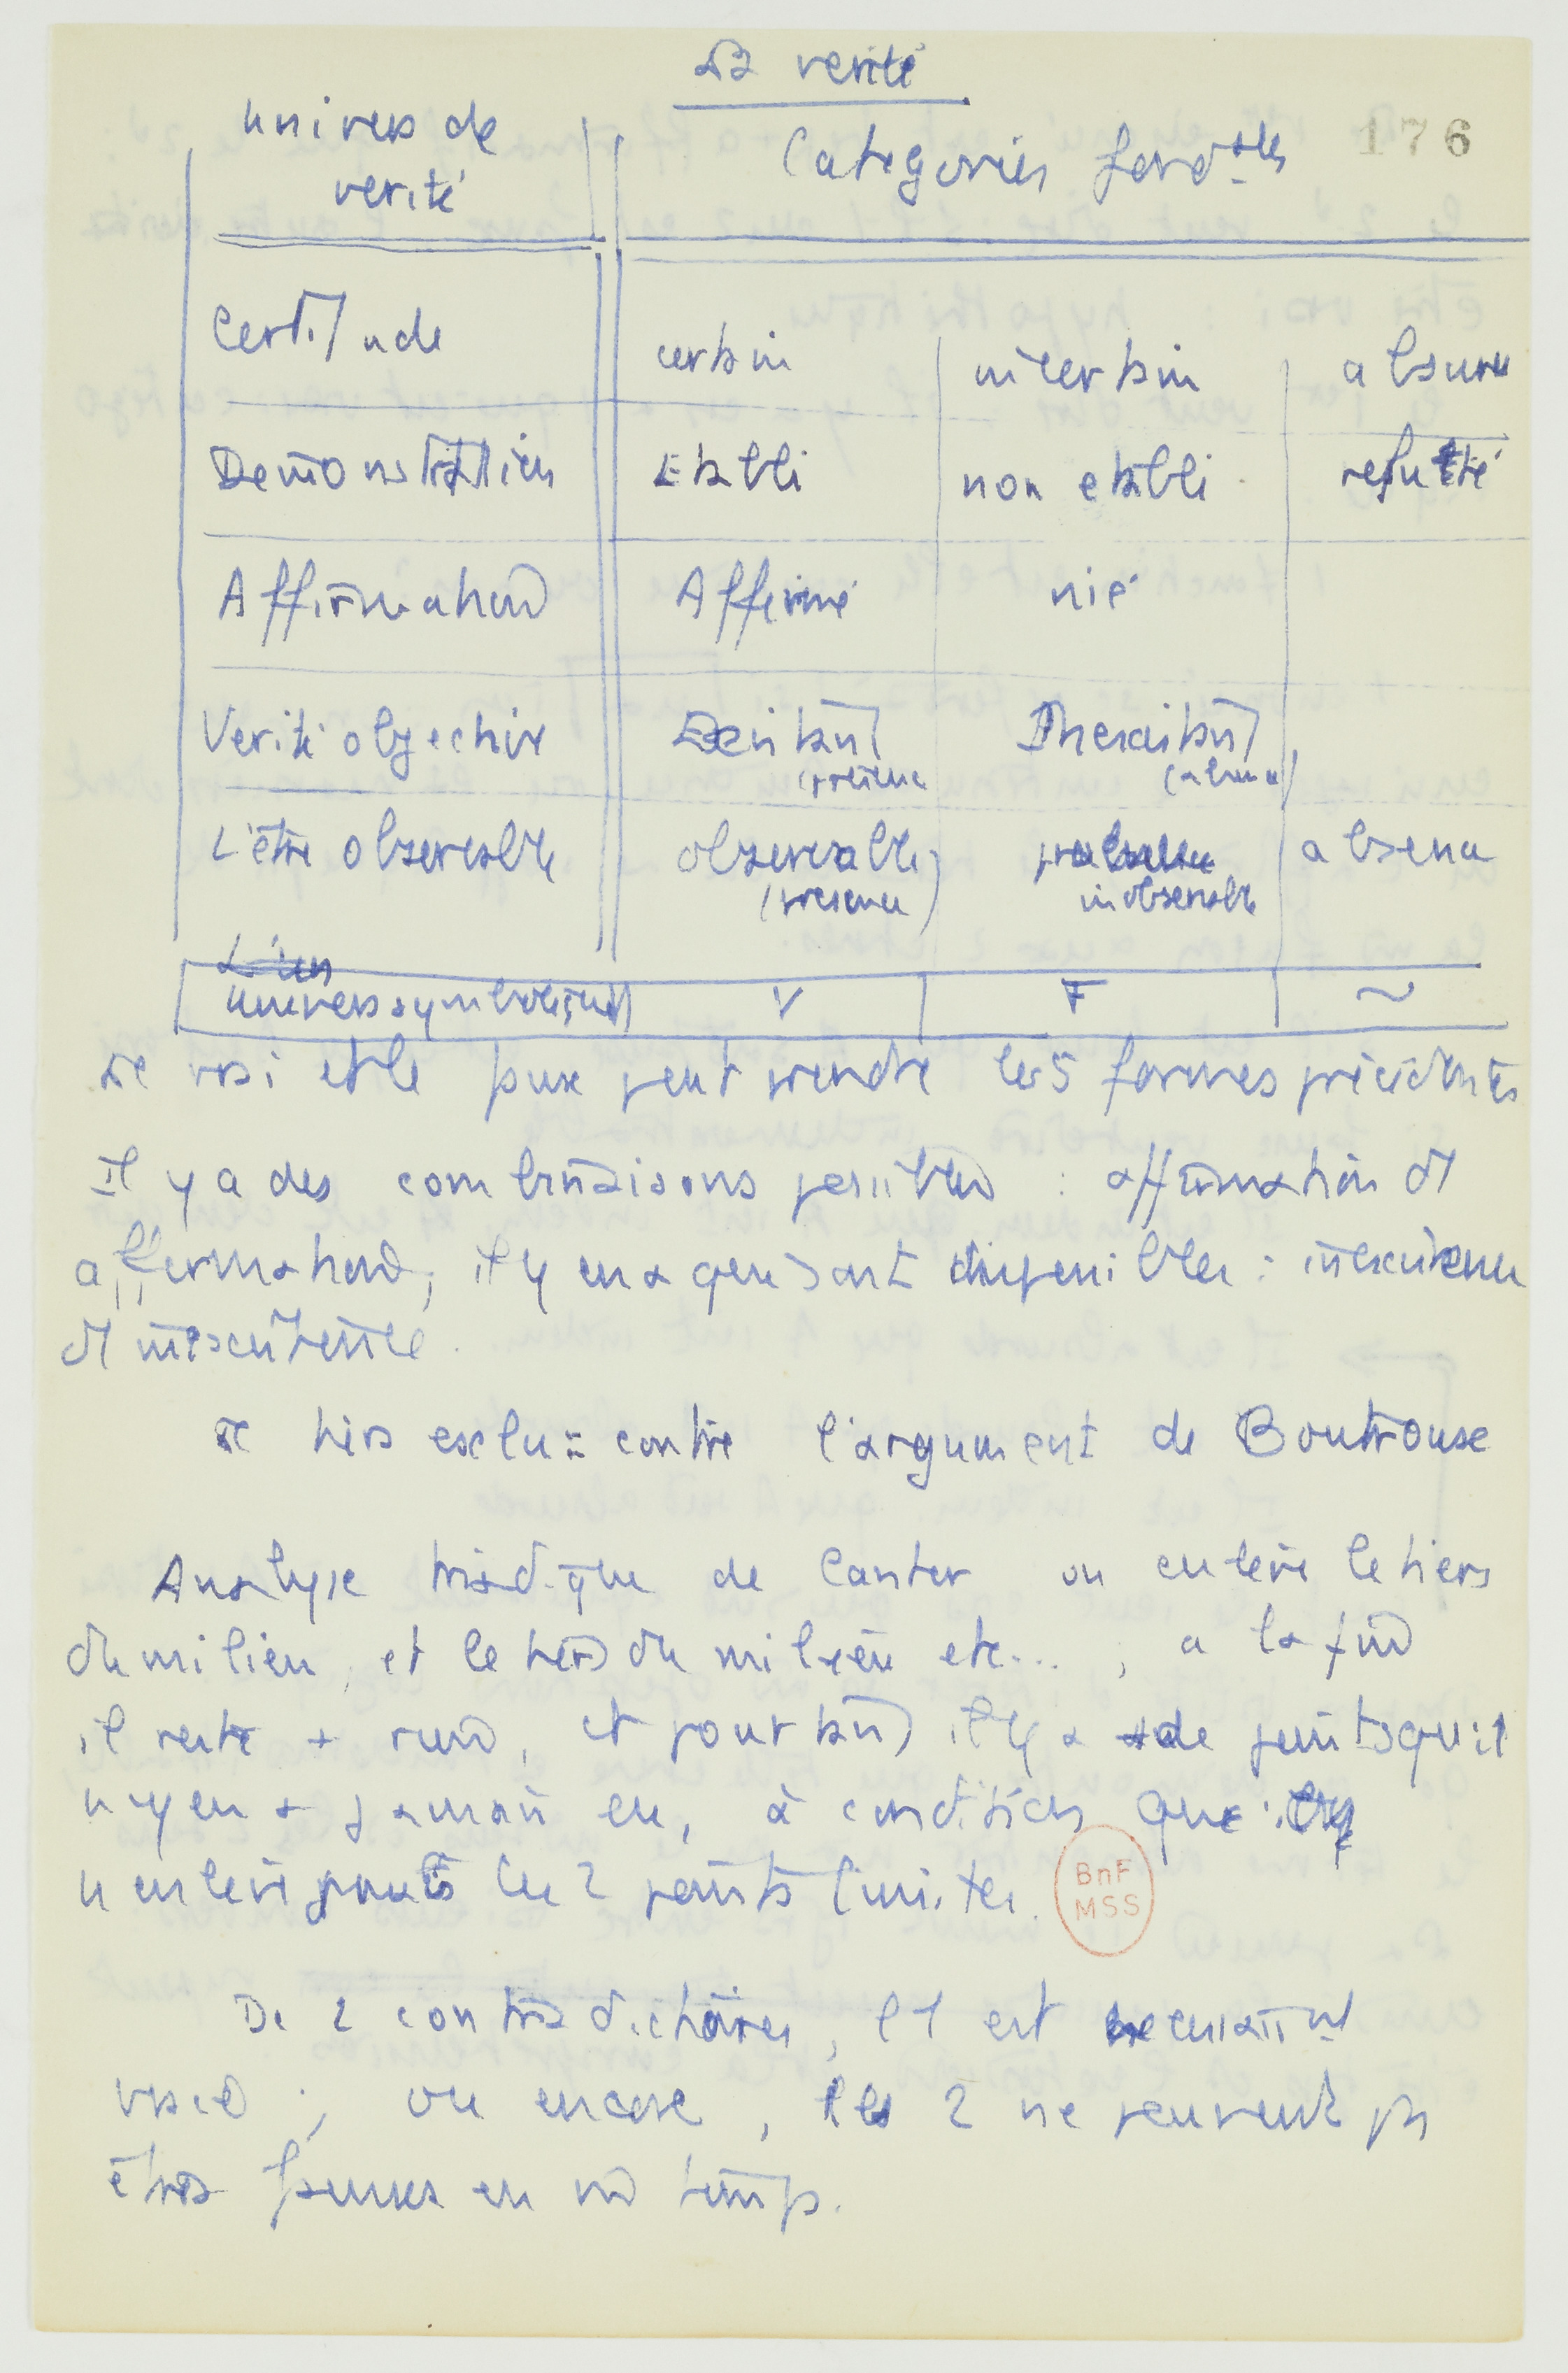 La verité
176
univers de
verité
Categories fond-ales
Certitude
certain
incertain
absurde
Demonstration
Etabli
non etabli
refuté
Affirmation
Affirmé
nié
Verité objective
Existant
(présence
Inexistant
(absence)
L'être observable
observable
(presence)
inobservable
absence
univers symbolique
V
F
~
Le vrai et le faux peut prendre les 5 formes précédentes
Il y a des combinaisons possibles : affirmation et
affirmation, il y en a qui sont impossibles : inexistence
et inexistence.
Le tiers exclu : contre l'argument de Bouttrouse
Analyse triadique de Cantor on enleve le tiers
du milieu, et le tiers du milieu etc... , a la fin
il reste + rien, et pourtant il y a + de points qu'il
n'y en a jamais eu, à condition que
n'enleve pas les 2 points limites.
BnF
MSS
De 2 contradictoires, l'1 est necessairement
vraie ; ou encore, les 2 ne peuvent pas
être fausses en m temps.